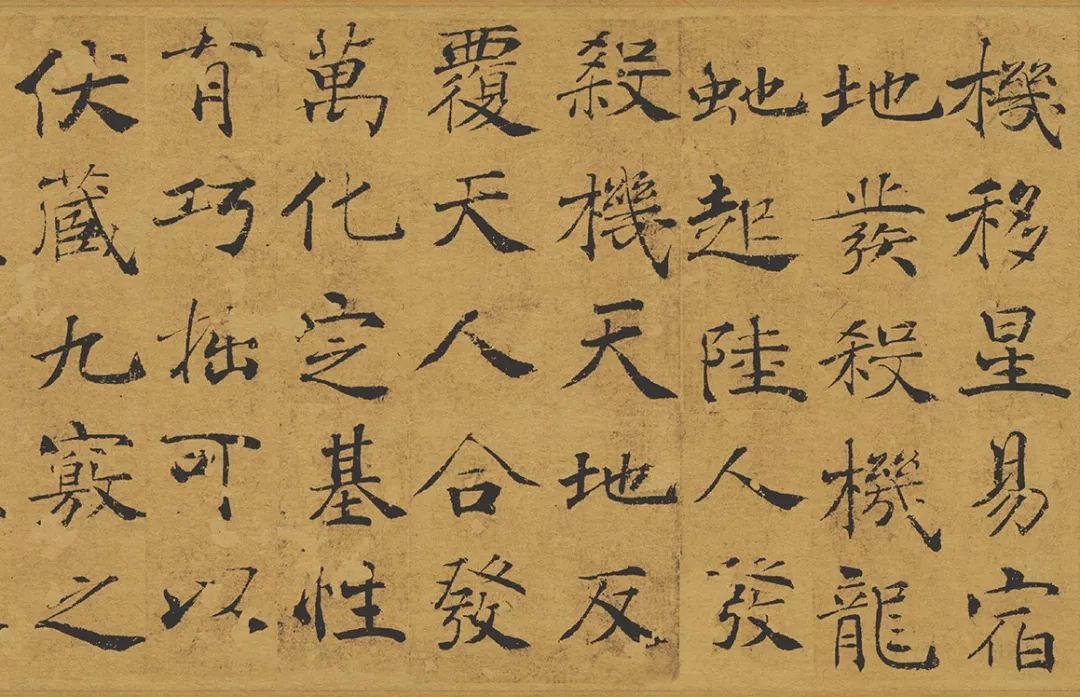 機移星易宿
地發殺機龍
虵起陸人發
殺機天地反
覆天人合發
萬化定基性
有巧拙可以
伏藏九竅之